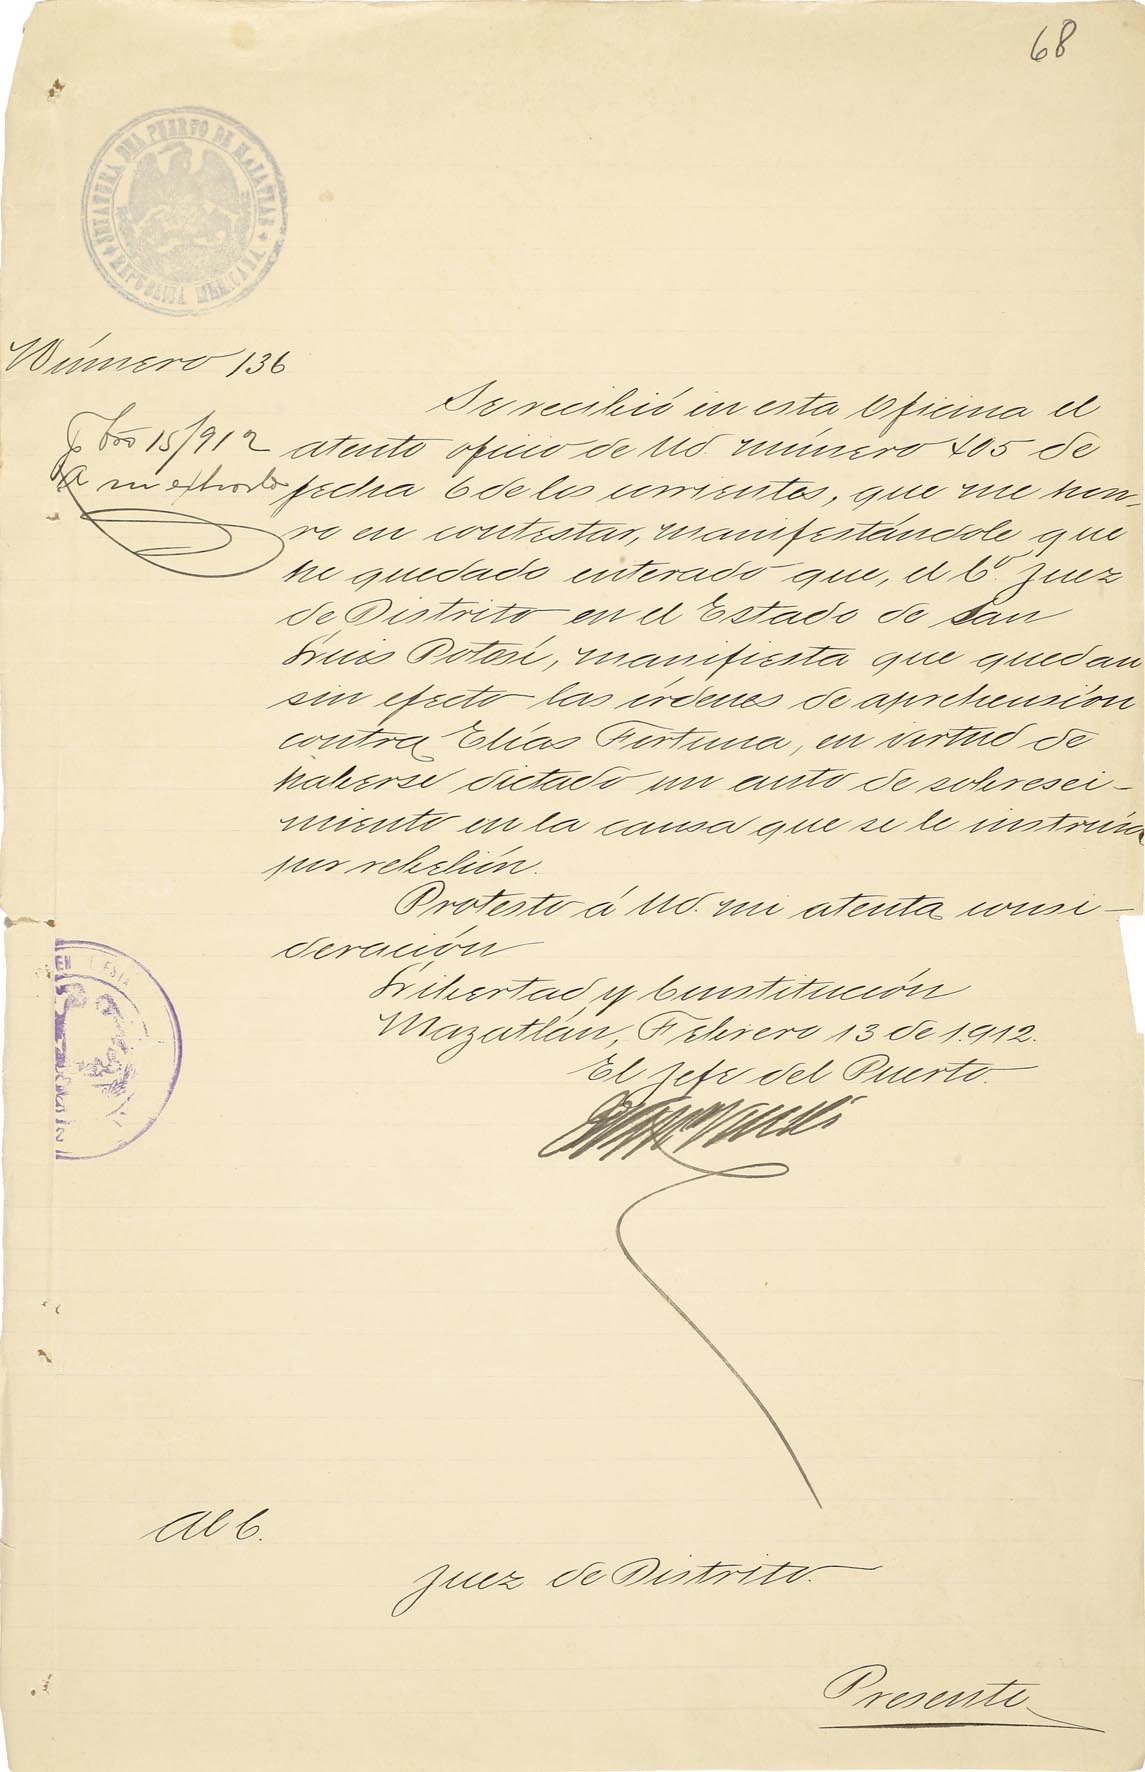 68
JEFATURA DEL PUERTO DE MAZATLAN
REPUBLICA MEXICANA
Número 136
Fbro 15/912
A su expdte
Se recibió en esta Oficina el
atento oficio de Ud. número 405 de
fecha 6 de los corrientes, que me hon-
ro en contestar, manifestándole que
he quedado enterado que, el C. Juez
de Distrito en el Estado de San
Luis Potosí, manifiesta que quedan
sin efecto las órdenes de aprehensión
contra Elías Fortuna, en virtud de
haberse dictado un auto de sobresei-
miento en la causa que se le instruía
por rebelión.
Protesto á Ud. mi atenta consi-
deración
Libertad y Constitución
Mazatlán, Febrero 13 de 1.912.
El Jefe del Puerto.
EN ESTA
Al C.
Juez de Distrito.
Presente